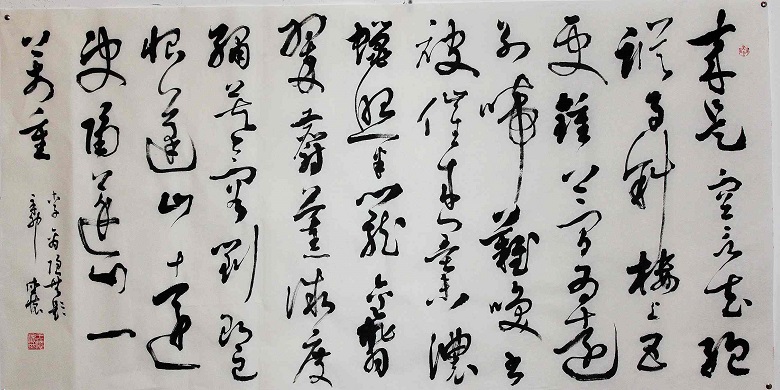 來是空言去絕
蹤月斜樓上五
更鐘夢為遠
別啼難喚書
被催成墨未濃
蠟照半籠金翡
翠麝薰微度
繡芙蓉劉郎已
恨蓬山遠
更隔蓬山一
萬重
李商隐無題